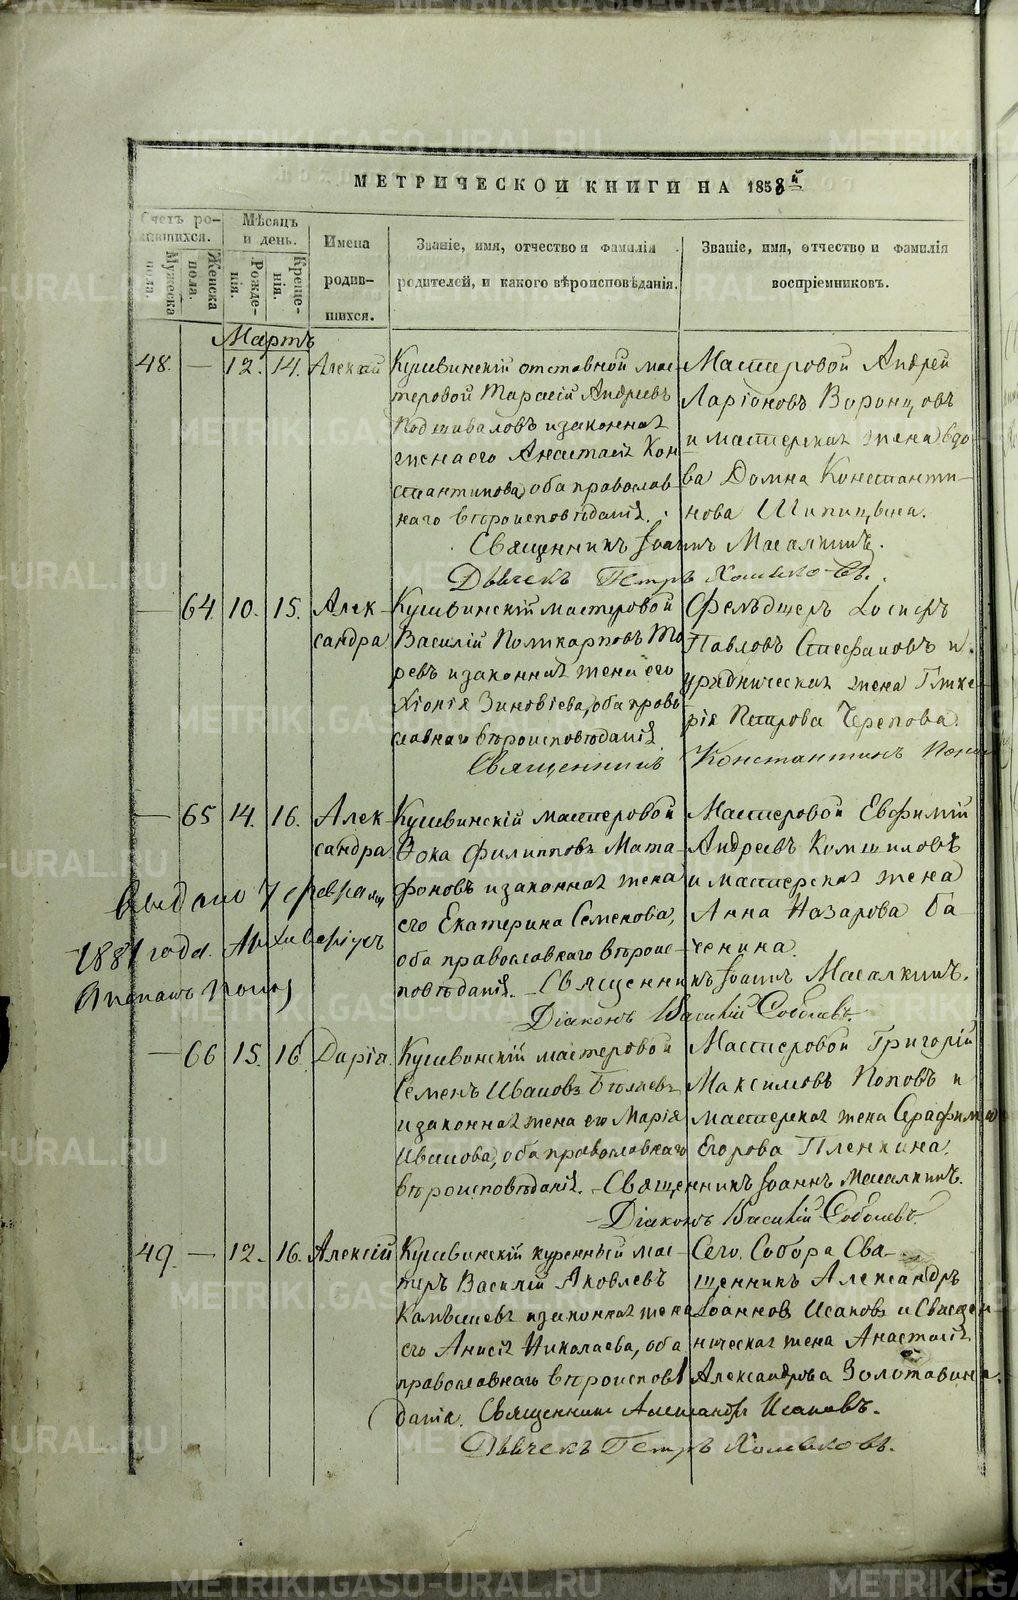 МЕТРИЧЕСКОЙ КНИГИ НА 1858й
Счетъ родившихся.
Мужеска пола.
Женска пола.
Мѣсяцъ и день.
Рожденія.
Крещенія.
Имена родившихся.
Званіе, имя, отчество и фамилія родителей, и какого вѣроисповѣданія.
Званіе, имя, отчество и фамилія воспріемниковъ.
Мартъ
48. — 12. 14. Алексій
Кушвинскій отставной мас-
теровой Тарасій Андреевъ
Подшиваловъ и законная
жена его Анастасія Кон-
стантинова, оба православ-
наго вѣроисповѣданія.
Мастеровой Андрей
Ларіоновъ Воронцовъ
и мастерская жена вдо-
ва Домна Константи-
нова Шипицына.
Священникъ Іоаннъ Масалкинъ.
Дьячекъ Петръ Хомяковъ.
— 64. 10. 15. Алек-
сандра
Кушвинскій мастеровой
Василій Поликарповъ
и законная жена его
Хіонія Зиновіева, оба право-
славнаго вѣроисповѣданія.
Фельдшеръ Іосифъ
Павловъ Стефановъ и
урядническая жена Глике-
рія Петрова Черепова.
Священникъ Константинъ
— 65 14. 16. Алек-
сандра
Кушвинскій мастеровой
Фока Филипповъ Мата-
фоновъ и законная жена
его Екатерина Семенова,
оба православнаго вѣроис-
повѣданія.
Мастеровой Евфимій
Андреевъ
и мастерская жена
Анна Назарова Ба-
ченина.
Священникъ Іоаннъ Масалкинъ.
Діаконъ Василій Соболевъ.
Выдано 7 февраля
1881 года.
— 66 15. 16. Дарія.
Кушвинскій мастеровой
Семенъ Ивановъ Бѣляевъ
и законная жена его Марія
Иванова, оба православнаго
вѣроисповѣданія.
Мастеровой Григорій
Максимовъ Поповъ и
мастерская жена Серафима
Егорова Пленкина.
Священникъ Іоаннъ Масалкинъ.
Діаконъ Василій Соболевъ.
49. — 12. 16. Алексій
Кушвинскій куренный мас-
теръ Василій Яковлевъ
и законная жена
его Анисія Николаева, оба
православнаго вѣроисповѣ-
данія.
Сего Собора Свя-
щенникъ Александръ
Іоанновъ Исаковъ и Священ-
ническая жена Анастасія
Александрова Золотавина.
Священникъ Александръ Исаковъ.
Дьячекъ Петръ Хомяковъ.
METRIKI.GASO-URAL.RU